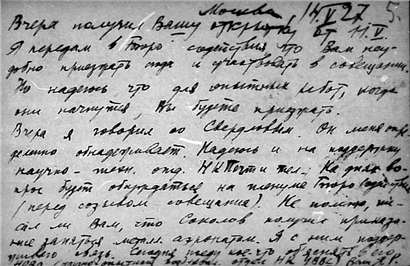 Москва, 14.V.27 5.
Вчера получил Вашу открытку от 11.V.
Я передам в Бюро содействия, что Вам неу-
добно приезжать сюда и участвовать в совещании.
Но надеюсь что для опытных работ, когда
они начнутся, Вы будете приезжать.
Вчера я говорил со Свердловым. Он меня опре-
деленно обнадеживает. Надеюсь и на поддержку
научно-техн. отд. НКПочт и тел. На днях во-
прос будет обсуждаться на пленуме Бюро
(перед созывом совещания). Не помню, пи-
сал ли Вам, что Соколов получил приказа-
ние заняться металл. аэропатом. Я с ним поддер-
живаю связь. Сегодня